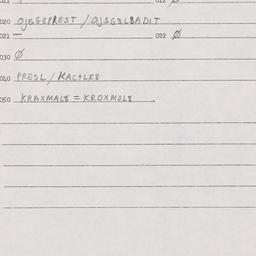 020 OJSG3PREST / OJSG3LBADIT
021 — 022 Ø
030 Ø
040 PRESL / KAC+LK3
050 KRAXMAL8 = KROXMOL8